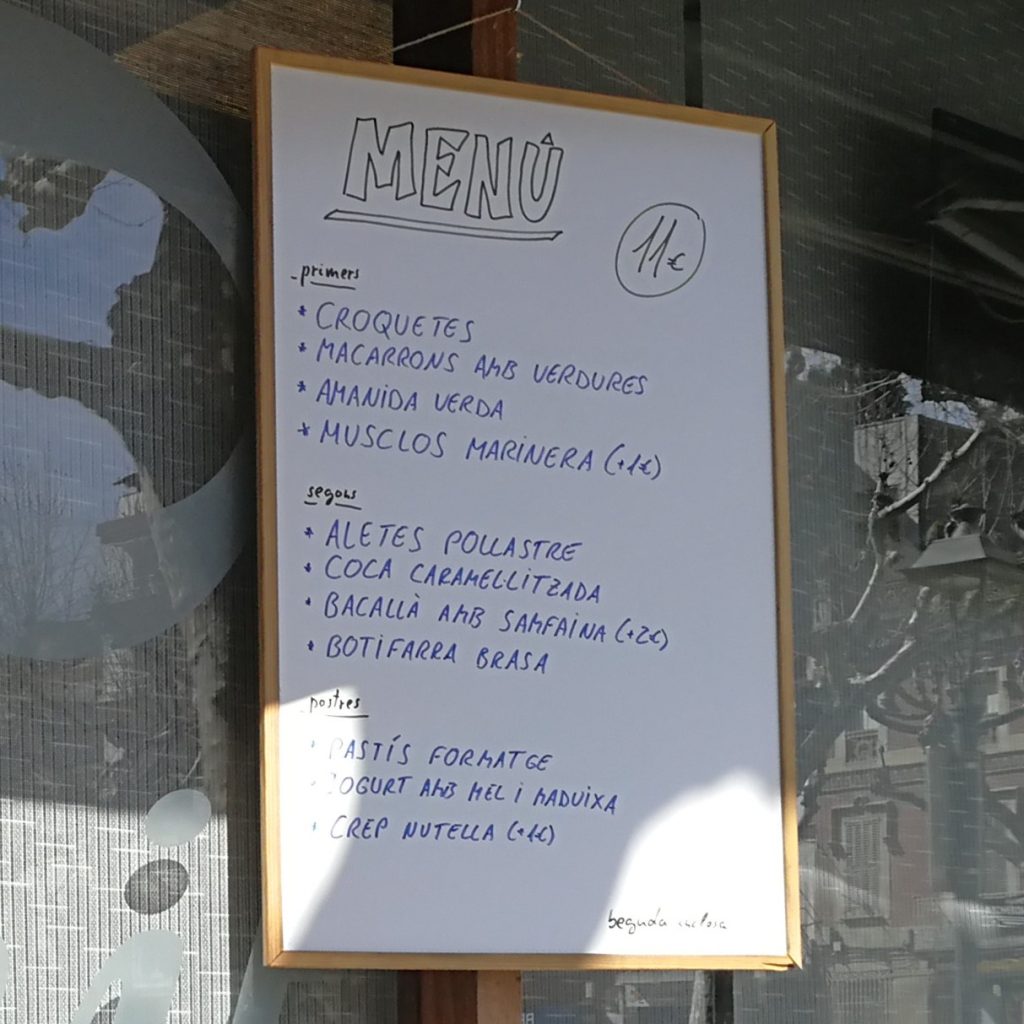 MENÚ
11€
- primers
* CROQUETES
* MACARRONS AMB VERDURES
* AMANIDA VERDA
* MUSCLOS MARINERA (+1€)
segons
* ALETES POLLASTRE
* COCA CARAMELLITZADA
* BACALLÀ AMB SAMFAINA (+2€)
* BOTIFARRA BRASA
postres
* PASTÍS FORMATGE
* IOGURT AMB MEL I MADUIXA
* CREP NUTELLA (+1€)
beguda inclosa